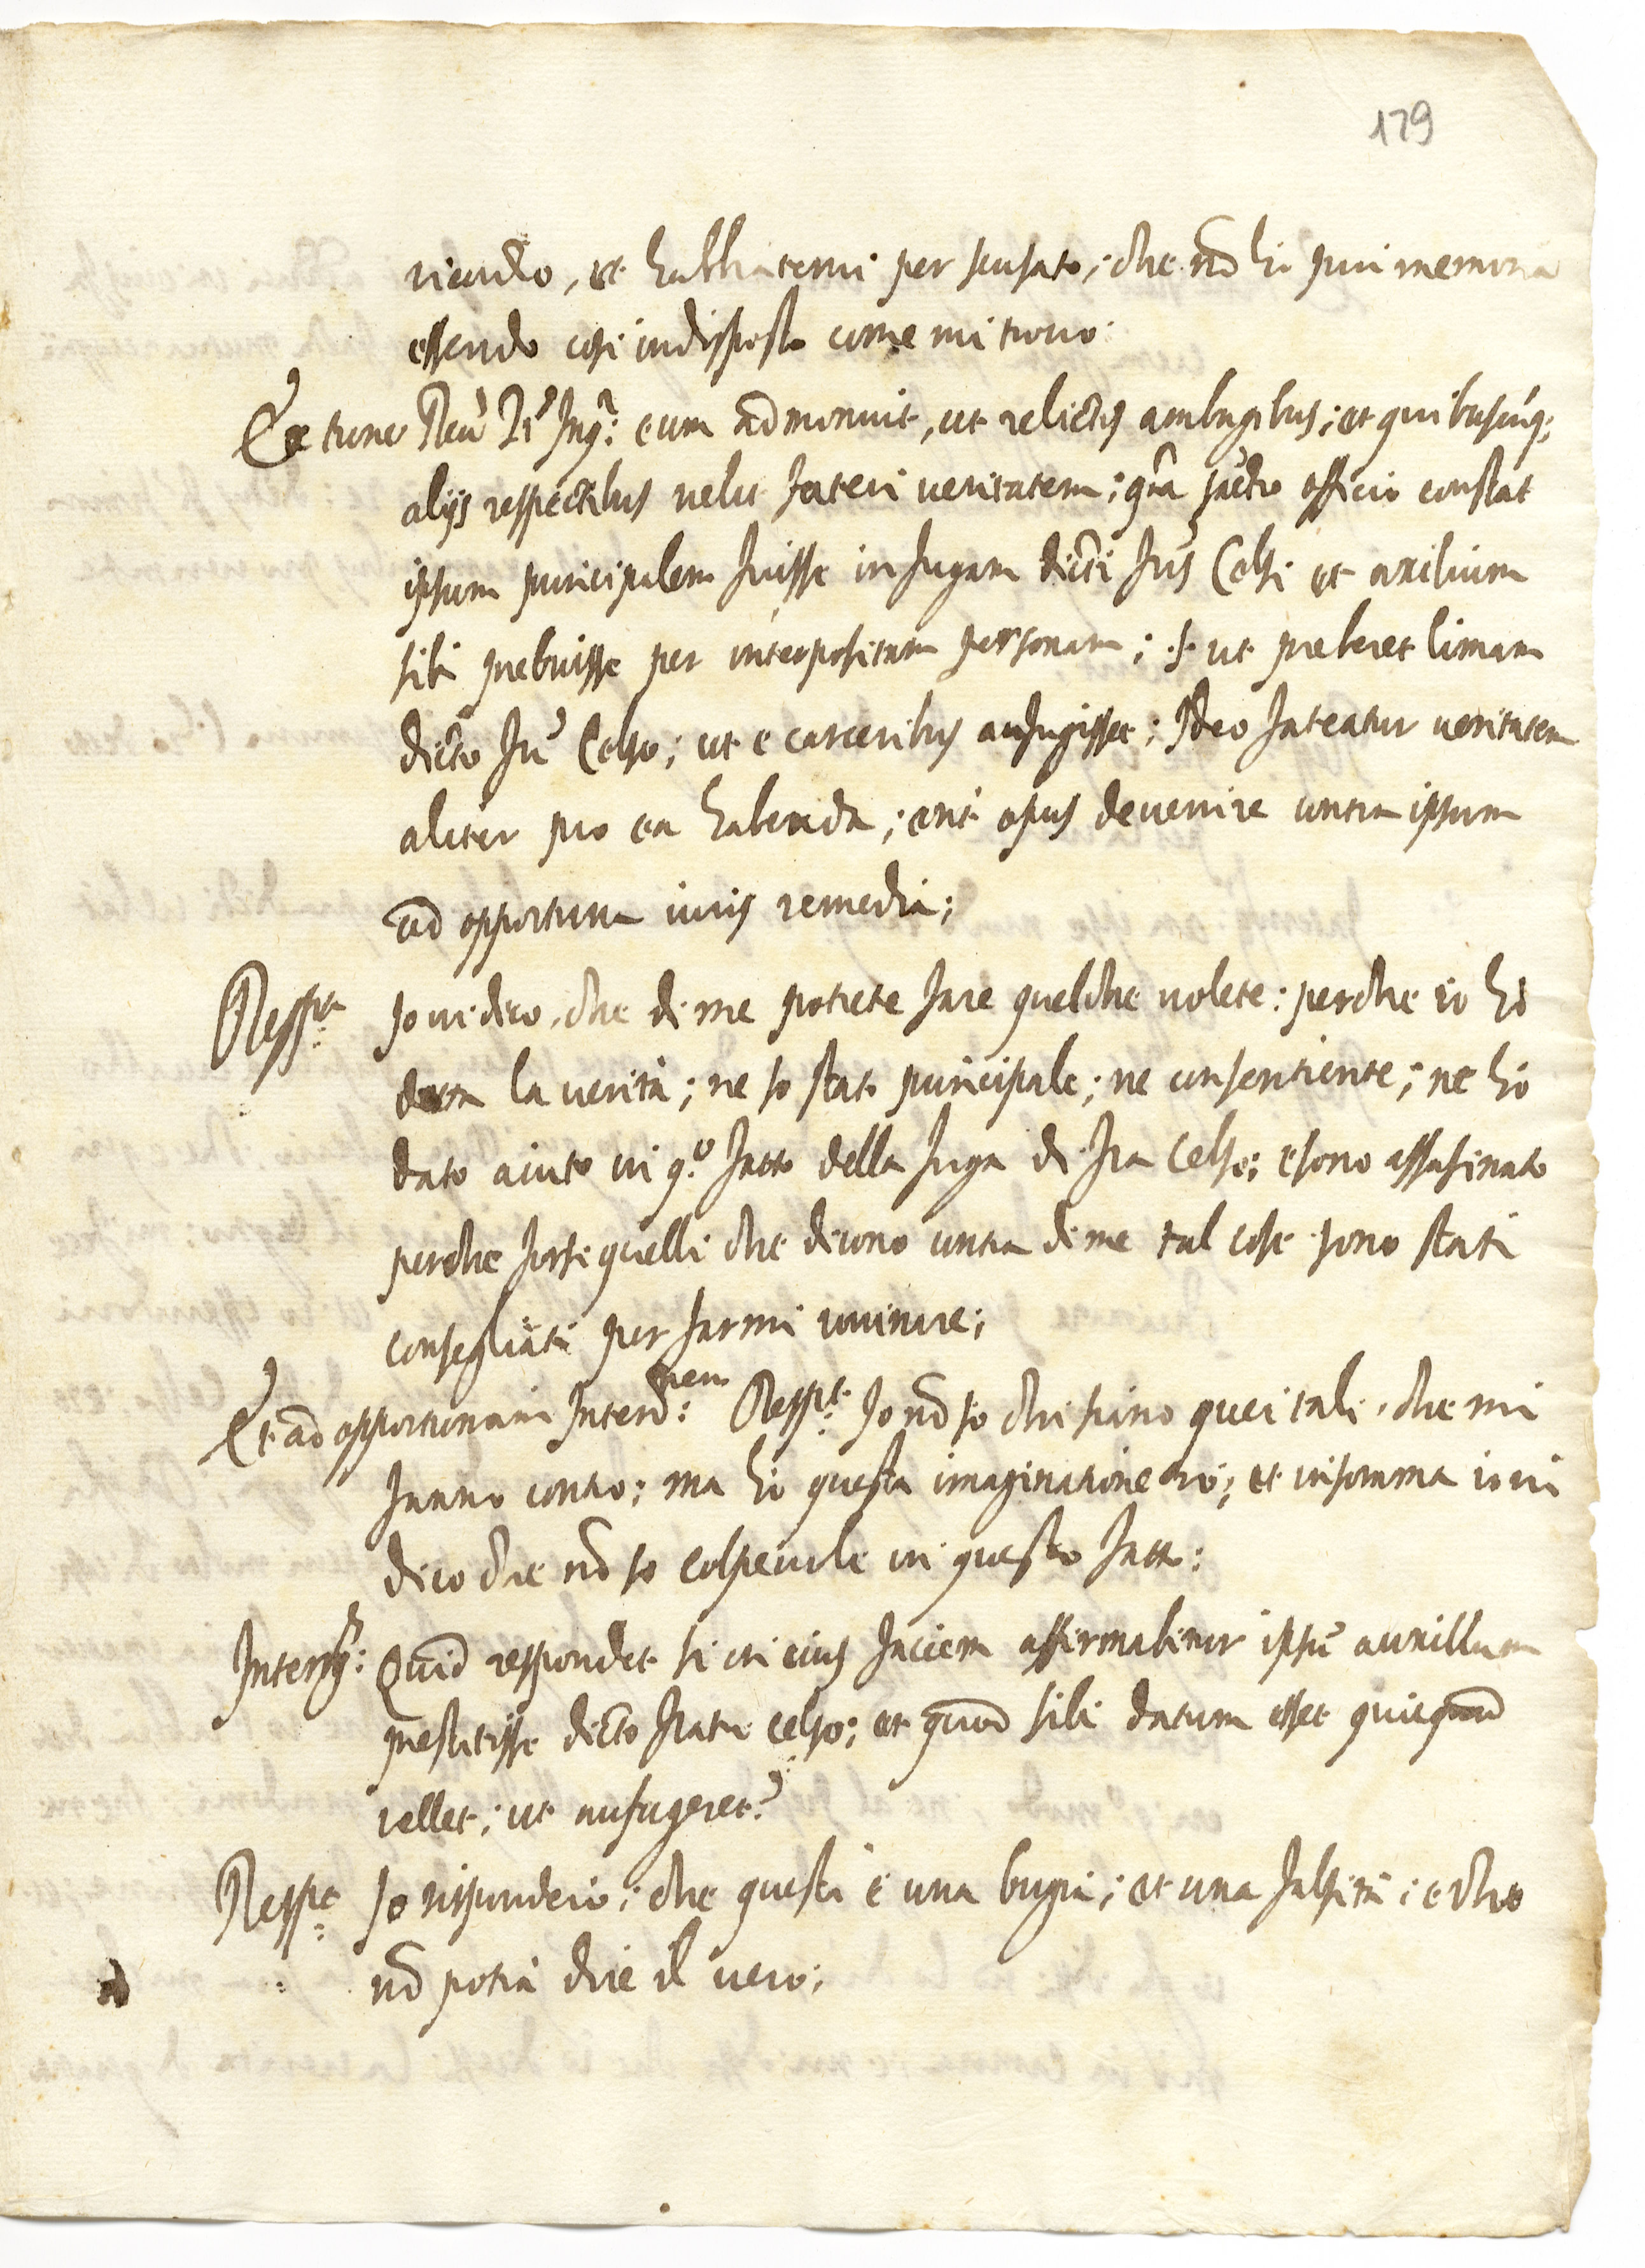 179
ricordo, et habbiatemi per scusato; che nõ hò piu memoria
essendo cosi indisposto come mi trouo:
Et tunc Reu.^s P. Inq.^r: eum admonuit, ut relictis ambagibus; et quibuscũq;
alijs respectibus uelit fateri ueritatem; q̃a s.cto officio constat
ipsum principalem fuisse in fugam dicti fr̃is Celsi et auxilium
sibi prebuisse per interpositam personam; .s. ut preberet limam
dicto fr̃i Celso; ut e carceribus aufugisset; Ideo fateatur ueritatem
aliter pro ea habenda; erit opus deuenire contra ipsum
ad opportuna iuris remedia;
Resp.^t Io ui dico, che di me potrete fare quel che uolete: perche io hò
detta la uerità; ne so stato principale; ne consentiente; ne hò
dato aiuto in q.^o fatto della fuga di fra Celso; e sono assasinato
perche forsi quelli che dicono contra di me tal cose sono stati
consegliati per farmi ruinare;
Et ad opportunam Interr.^nem: Resp.^t Io nõ so chi siano quei tali, che mi
fanno contro; ma hò questa imaginatione ; et in somma io ui
dico che nõ so colpeuole in questo fatto:
Interrg.^s: Quid respondet si in eius faciem affirmabitur ipsũ auxillium
prestitisse dicto fratri Celso; et quod sibi datum esset quicquid
uellet; ut aufugeret?
Resp.^t Io risponderò; che questa è una bugia; et una falsità; e che
nõ potrà dire il uero;